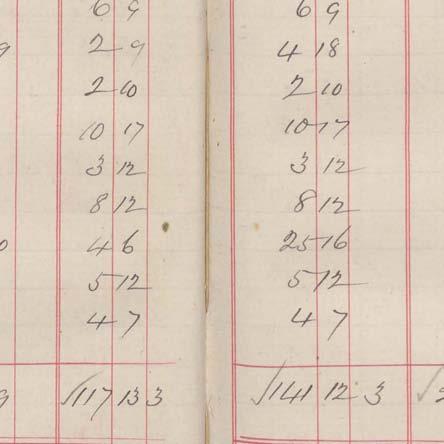 6 9 6 9
9 2 9 4 18
2 10 2 10
10 17 10 17
3 12 3 12
8 12 8 12
0 4 6 25 16
5 12 5 12
4 7 4 7
9 √117 13 3 √141 12 3 √2